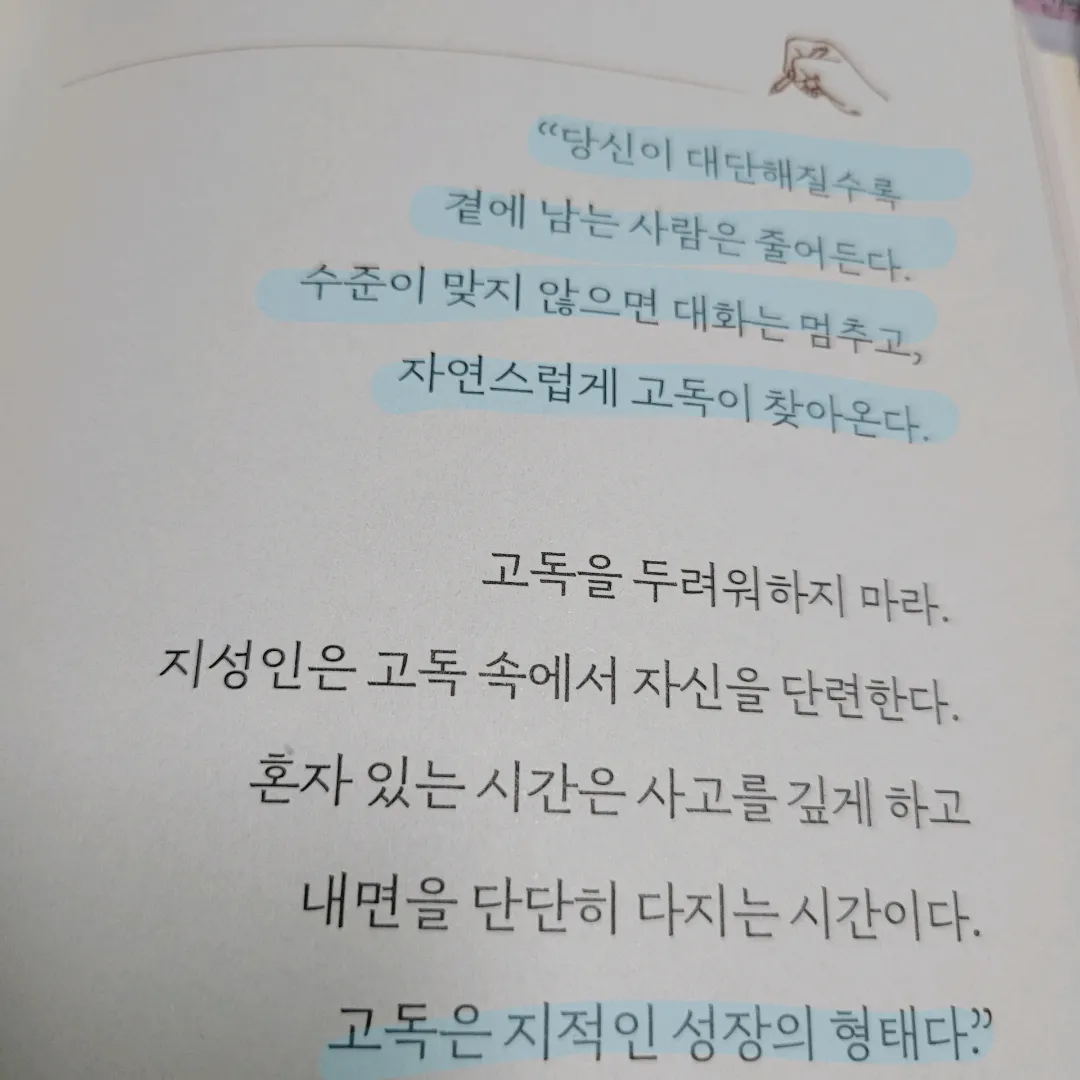 “당신이 대단해질수록
곁에 남는 사람은 줄어든다.
수준이 맞지 않으면 대화는 멈추고,
자연스럽게 고독이 찾아온다.
고독을 두려워하지 마라.
지성인은 고독 속에서 자신을 단련한다.
혼자 있는 시간은 사고를 깊게 하고
내면을 단단히 다지는 시간이다.
고독은 지적인 성장의 형태다.”